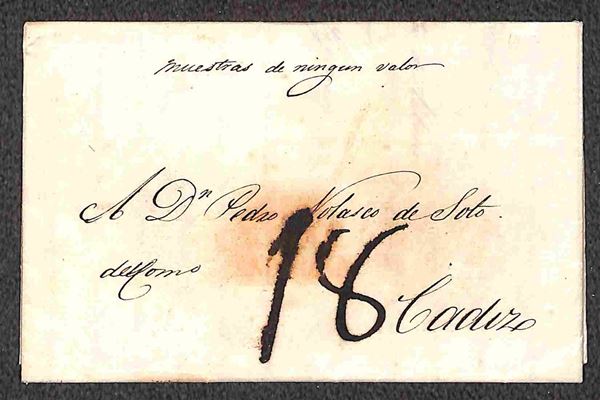 muestras de ningun valor
A Dn Pedro Nolasco de Soto.
18
Cadiz